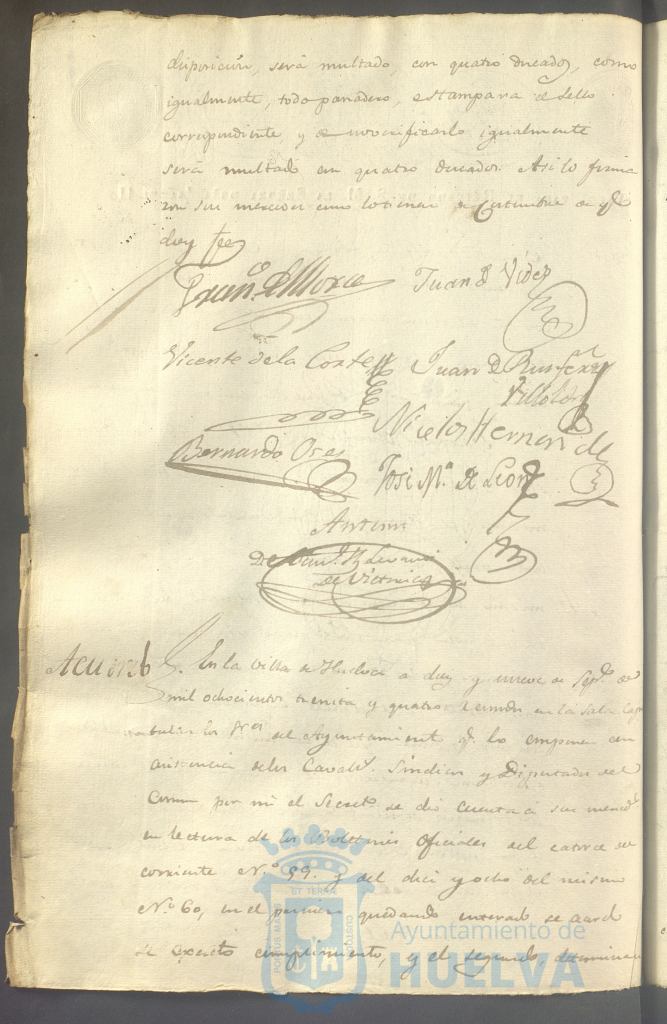 disposicion, será multado, con quatro ducados, como
igualmente, todo panadero, estampara el sello
correspondiente, y de no verificarlo igualmente
será multado en quatro ducados. Asi lo firma
ron sus mercedes como lo tienen de Costumbre de q.e
doy fee
Juan de Vides
Vicente de la Corte
Juan de
Villalobos
Nicolas Hernandez
Bernardo
José M.a de Leon
Antemi
de Victoria
Acuerdo
En la Villa de Huelva a diez y nueve de Sep.e de
mil ochocientos treinta y quatro reunidos en la sala Capi
tular los Sres del Ayuntamiento q.e lo componen con
asistencia de los Cavall.s Sindicos y Diputados del
Comun por mi el Secret.o se dio cuenta a sus merced.s
en lectura de los Boletines Oficiales del catorce del
corriente N.o 59. y del diez y ocho del mismo
N.o 60, en el primero quedando enterado se acordó
su exacto cumplimiento, y el segundo,
PORTUS MARIS
ET TERRÆ
CUSTODIA
Ayuntamiento de
HUELVA